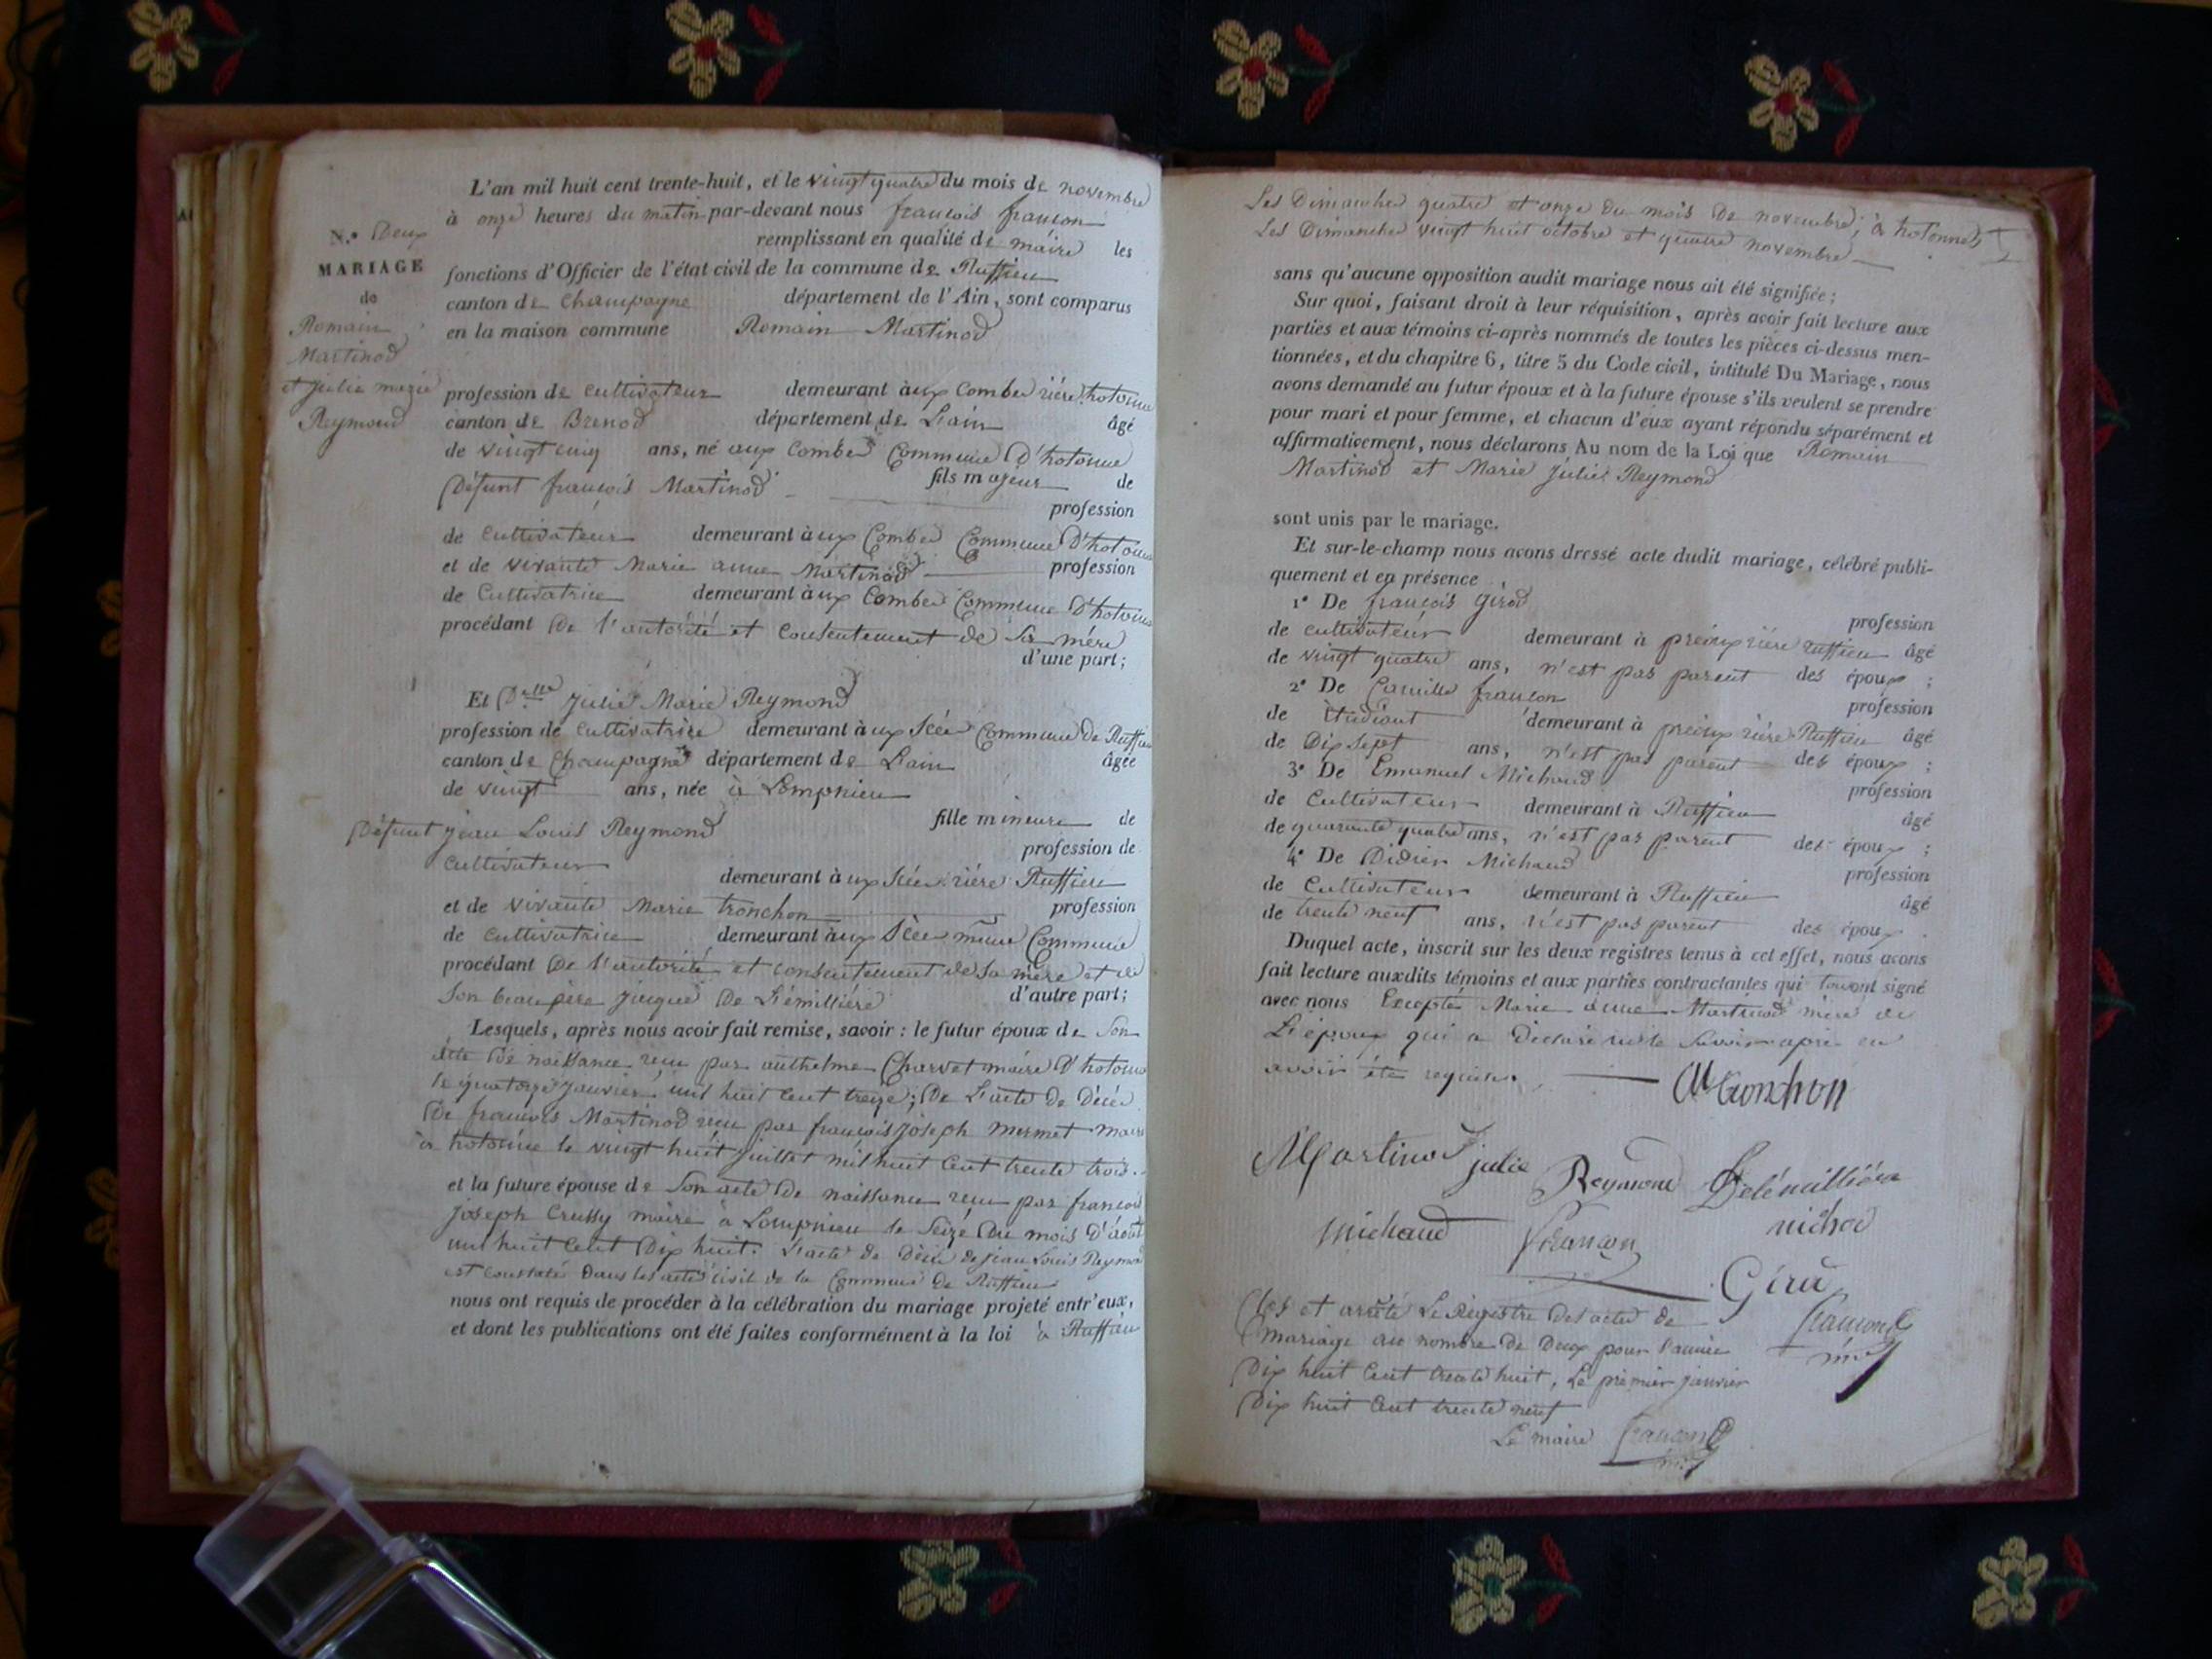 N.° Deux
MARIAGE
de
Romain
Martinod
et julie marie
Reymond
L'an mil huit cent trente-huit, et le vingt quatre du mois de novembre
à onze heures du matin par-devant nous françois françon
remplissant en qualité de maire les
fonctions d'Officier de l'état civil de la commune de Ruffieu
canton de Champagne département de l'Ain, sont comparus
en la maison commune Romain Martinod
profession de cultivateur demeurant aux Combes rière hotonne
canton de Brenod département de L'ain âgé
de vingt cinq ans, né aux Combes Commune D'hotonne
fils majeur de
Défunt françois Martinod profession
de Cultivateur demeurant aux Combes Commune D'hotonne
et de vivante Marie anne Martinod profession
de Cultivatrice demeurant aux Combes Commune D'hotonne
procédant De l'autorité et Consentement de Sa mère
d'une part;
Et D.elle Julie Marie Reymond
profession de Cultivatrice demeurant aux Scée Commune De Ruffieu
canton de Champagne département de L'ain âgée
de vingt ans, née à Lompnieu
fille mineure de
Défunt jean Louis Reymond profession de
Cultivateur demeurant aux Scée rière Ruffieu
et de vivante Marie tronchon profession
de Cultivatrice demeurant aux Scée même Commune
procédant De l'autorité et consentement de Sa mère et de
Son beau père jacques De L'émillière d'autre part;
Lesquels, après nous avoir fait remise, savoir : le futur époux de Son
acte De naissance reçu par anthelme Charvet maire D'hotonne
le quatorze janvier mil huit Cent treize; De L'acte de Décès
De françois Martinod reçu par françois joseph mermet maire
à hotonne le vingt huit juillet mil huit Cent trente trois.
et la future épouse de Son acte De naissance reçu par françois
joseph Crussy maire à Lompnieu le Seize Du mois D'août
mil huit Cent Dix huit. L'acte de Décès de jean Louis Reymond
est constaté Dans les actes civil de la Commune De Ruffieu
nous ont requis de procéder à la célébration du mariage projeté entr'eux,
et dont les publications ont été faites conformément à la loi à Ruffieu
Les Dimanches quatre et onze du mois De novembre; à hotonnes
Les Dimanches vingt huit octobre et quatre novembre
sans qu'aucune opposition audit mariage nous ait été signifiée;
Sur quoi, faisant droit à leur réquisition, après avoir fait lecture aux
parties et aux témoins ci-après nommés de toutes les pièces ci-dessus men-
tionnées, et du chapitre 6, titre 5 du Code civil, intitulé Du Mariage, nous
avons demandé au futur époux et à la future épouse s'ils veulent se prendre
pour mari et pour femme, et chacun d'eux ayant répondu séparément et
affirmativement, nous déclarons Au nom de la Loi que Romain
Martinod et Marie Julie Reymond
sont unis par le mariage.
Et sur-le-champ nous avons dressé acte dudit mariage, célébré publi-
quement et en présence
1° De françois Girod profession
de cultivateur demeurant à rière Ruffieu âgé
de vingt quatre ans, n'est pas parent des époux ;
2° De Camille françon profession
de Etudiant demeurant à rière Ruffieu âgé
de Dix Sept ans, n'est pas parent des époux ;
3° De Emanuel Michaud profession
de Cultivateur demeurant à Ruffieu âgé
de quarante quatre ans, n'est pas parent des époux ;
4° De Didier Michaud profession
de Cultivateur demeurant à Ruffieu âgé
de trente neuf ans, n'est pas parent des époux
Duquel acte, inscrit sur les deux registres tenus à cet effet, nous avons
fait lecture auxdits témoins et aux parties contractantes qui l'ont signé
avec nous Excepté Marie anne Martinod mère de
L'époux qui a Déclaré ne le Savoir après en
avoir été requise. M tronchon
Martinod julie Reymond Delémillière
michaud françon michod
Girod
Clos et arrêté Le Registre Des actes de françon
Mariage au nombre De Deux pour l'année mre
Dix huit Cent trente huit, Le premier janvier
Dix huit Cent trente neuf
Le maire françon
mre